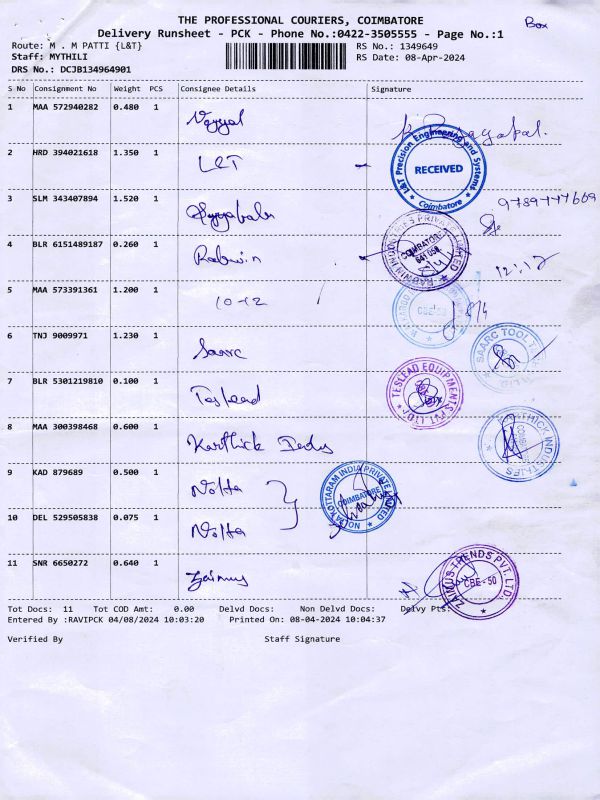 THE PROFESSIONAL COURIERS, COIMBATORE
Box
Delivery Runsheet - PCK - Phone No.:0422-3505555 - Page No.:1
Route: M . M PATTI {L&T} RS No.: 1349649
Staff: MYTHILI RS Date: 08-Apr-2024
DRS No.: DCJB134964901
S No Consignment No Weight PCS Consignee Details Signature
1 MAA 572940282 0.480 1
2 HRD 394021618 1.350 1 L&T
L&T Precision Engineering and Systems RECEIVED Coimbatore
3 SLM 343407894 1.520 1 9789777669
4 BLR 6151489187 0.260 1 Rabwin
COIMBATORE 641 050
12:12
5 MAA 573391361 1.200 1 10-12
CBE-50
8/4
6 TNJ 9009971 1.230 1 Saarc
SAARC TOOL
7 BLR 5301219810 0.100 1 Teslead
TESLEAD EQUIPMENTS PVT LTD.
8 MAA 300398468 0.600 1 Karthick Indus
KARTHICK INDUSTRIES
9 KAD 879689 0.500 1 Nolta
NOLTA KOTTARAM INDIA PRIVATE LIMITED COIMBATORE
10 DEL 529505838 0.075 1 Nolta
11 SNR 6650272 0.640 1 Zaimus
ZAIMUS TRENDS PVT. LTD. CBE-50
Tot Docs: 11 Tot COD Amt: 0.00 Delvd Docs: Non Delvd Docs: Delvy Pts:
Entered By :RAVIPCK 04/08/2024 10:03:20 Printed On: 08-04-2024 10:04:37
Verified By Staff Signature